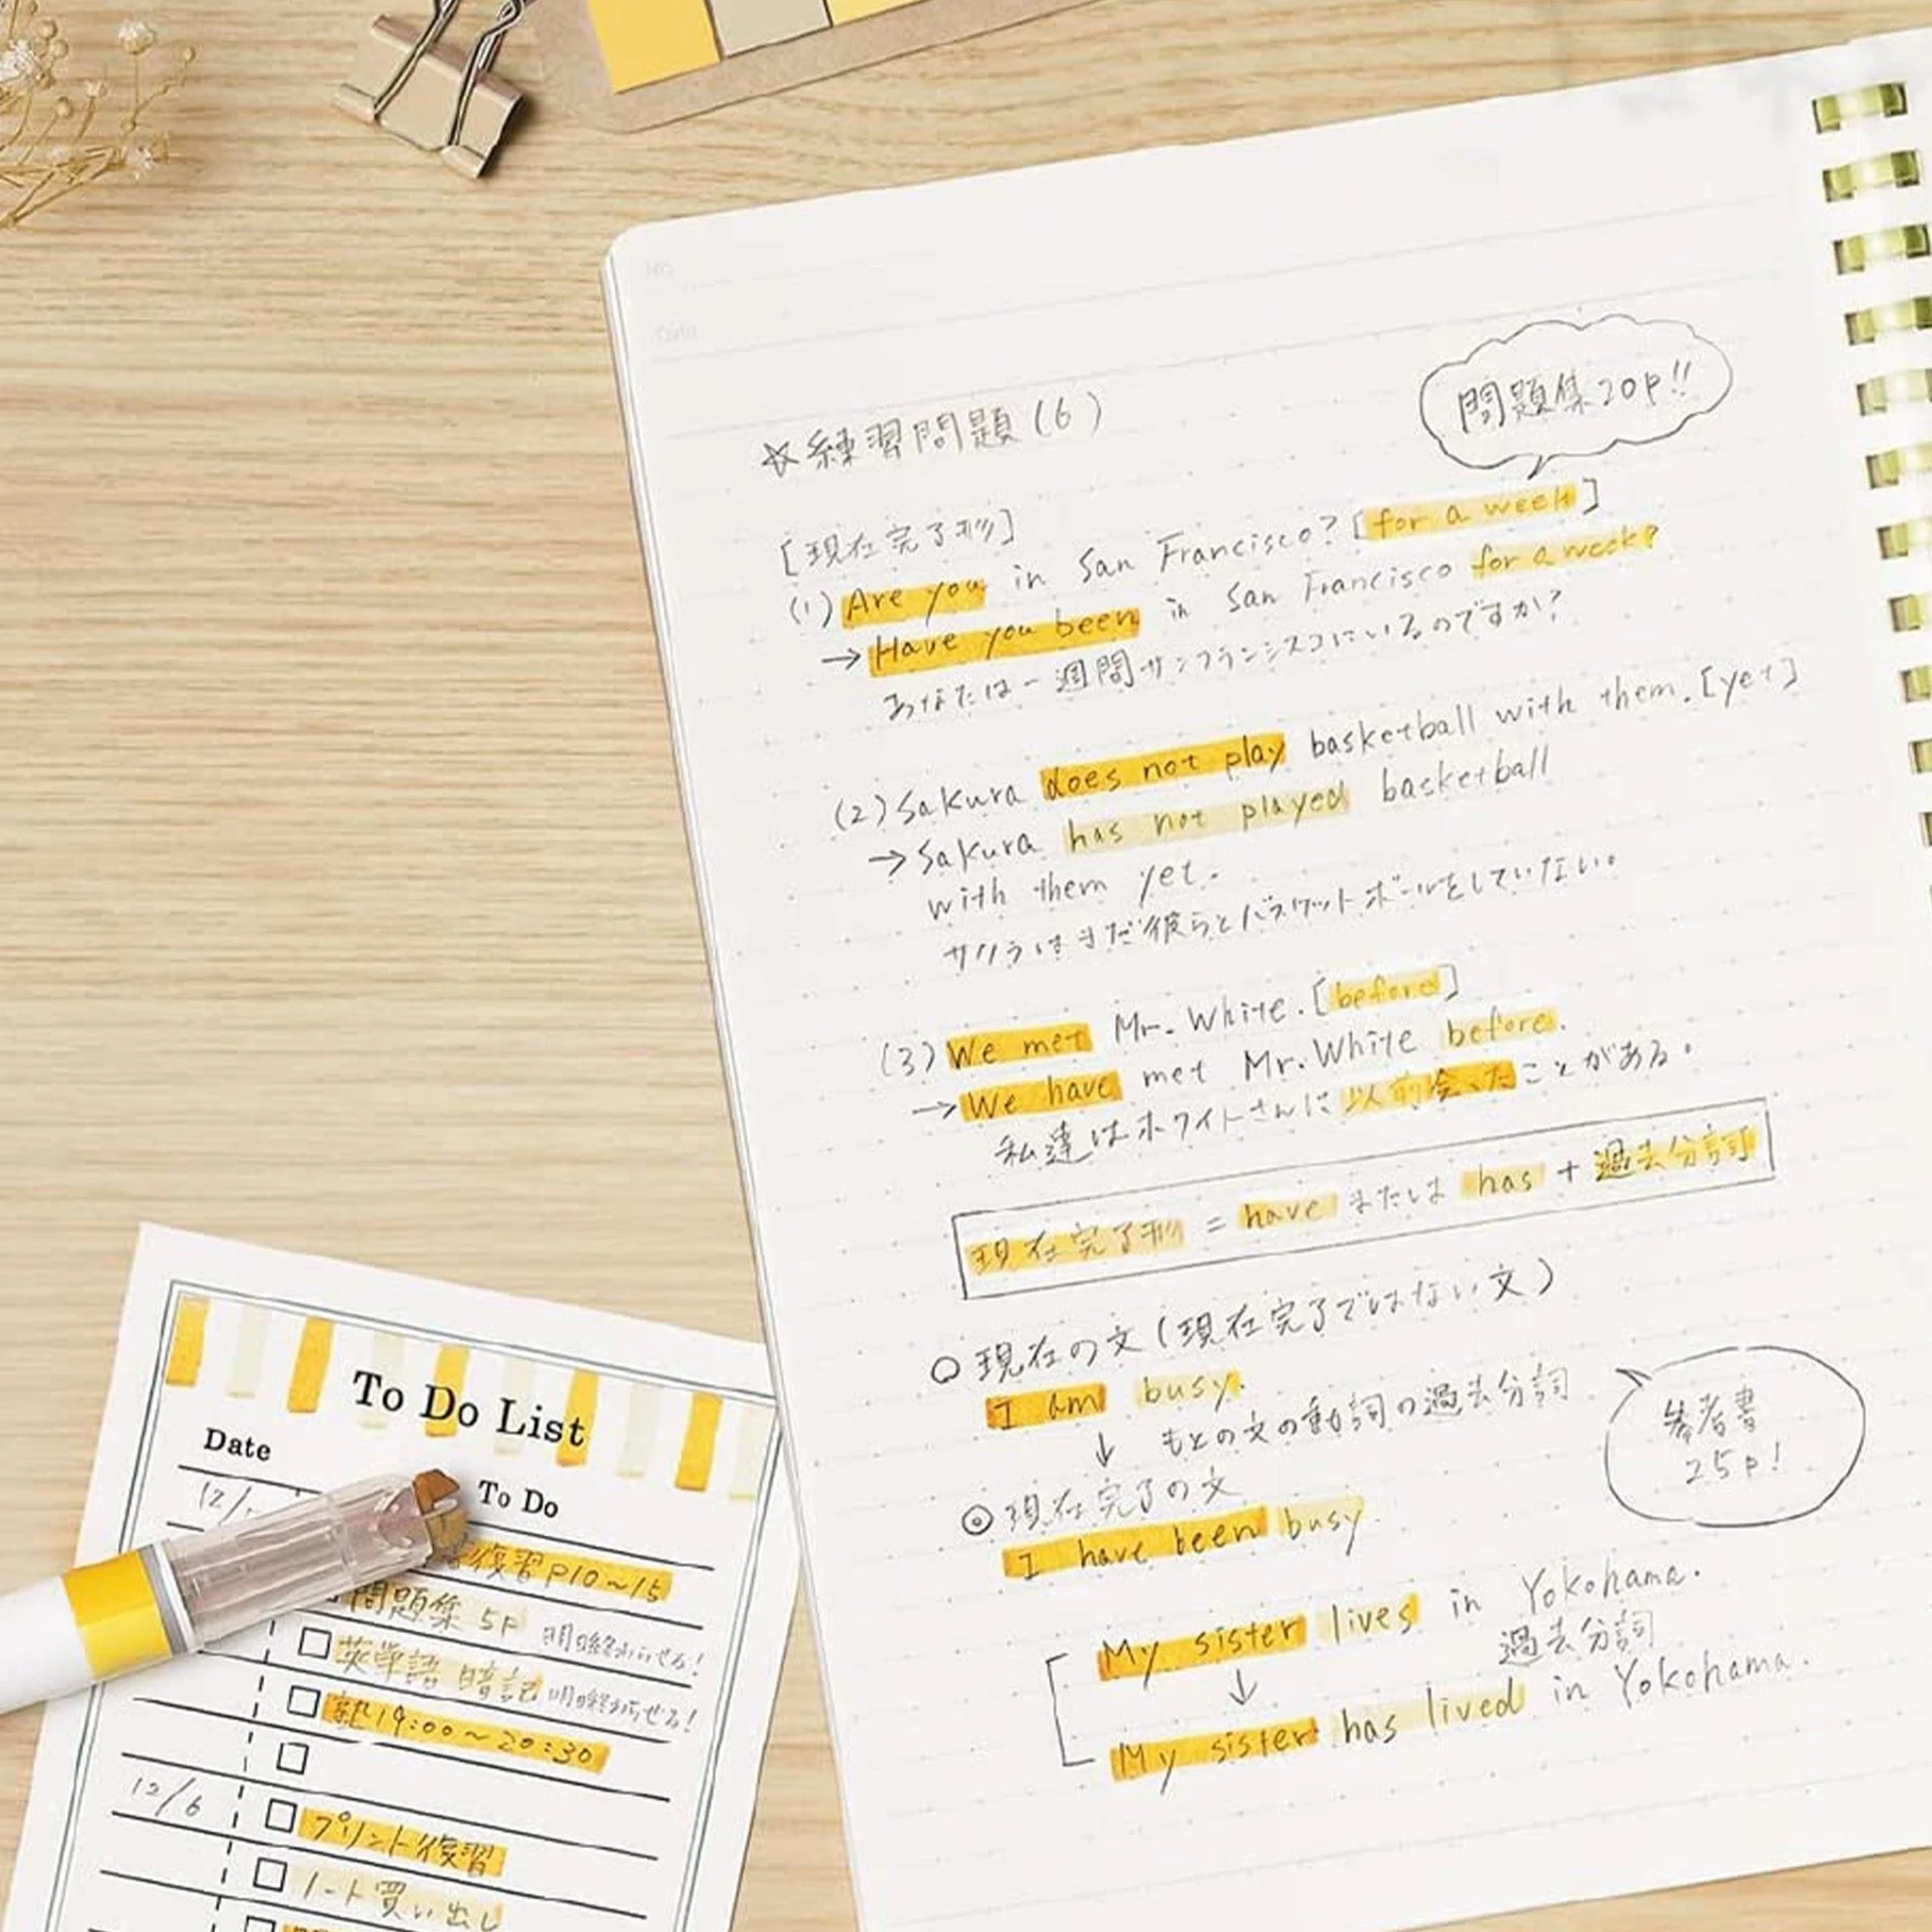 ☆練習問題(6)
問題集20p!!
[現在完了形]
(1) Are you in San Francisco? [for a week]
→ Have you been in San Francisco for a week?
あなたは一週間サンフランシスコにいるのですか?
(2) Sakura does not play basketball with them. [yet]
→ Sakura has not played basketball
with them yet.
サクラはまだ彼らとバスケットボールをしていない。
(3) We met Mr. White. [before]
→ We have met Mr. White before.
私達はホワイトさんに以前会ったことがある。
現在完了形 = have または has + 過去分詞
○ 現在の文 (現在完了ではない文)
I am busy.
↓ もとの文の動詞の過去分詞
参考書
25p!
◎ 現在完了の文
I have been busy.
My sister lives in Yokohama.
↓ 過去分詞
My sister has lived in Yokohama.
To Do List
Date
To Do
12/
復習 P10~15
問題集 5P 明日終わらせる!
□ 英単語 暗記 明日終わらせる!
□ 塾 19:00~20:30
□
12/6 □ プリント復習
□ ノート買い出し